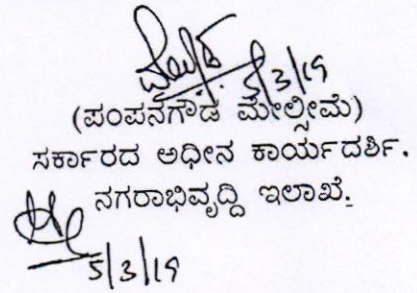 5/3/19
(ಪಂಪನಗೌಡ ಮೇಲ್ಸೀಮೆ)
ಸರ್ಕಾರದ ಅಧೀನ ಕಾರ್ಯದರ್ಶಿ.
ನಗರಾಭಿವೃದ್ಧಿ ಇಲಾಖೆ.
5/3/19